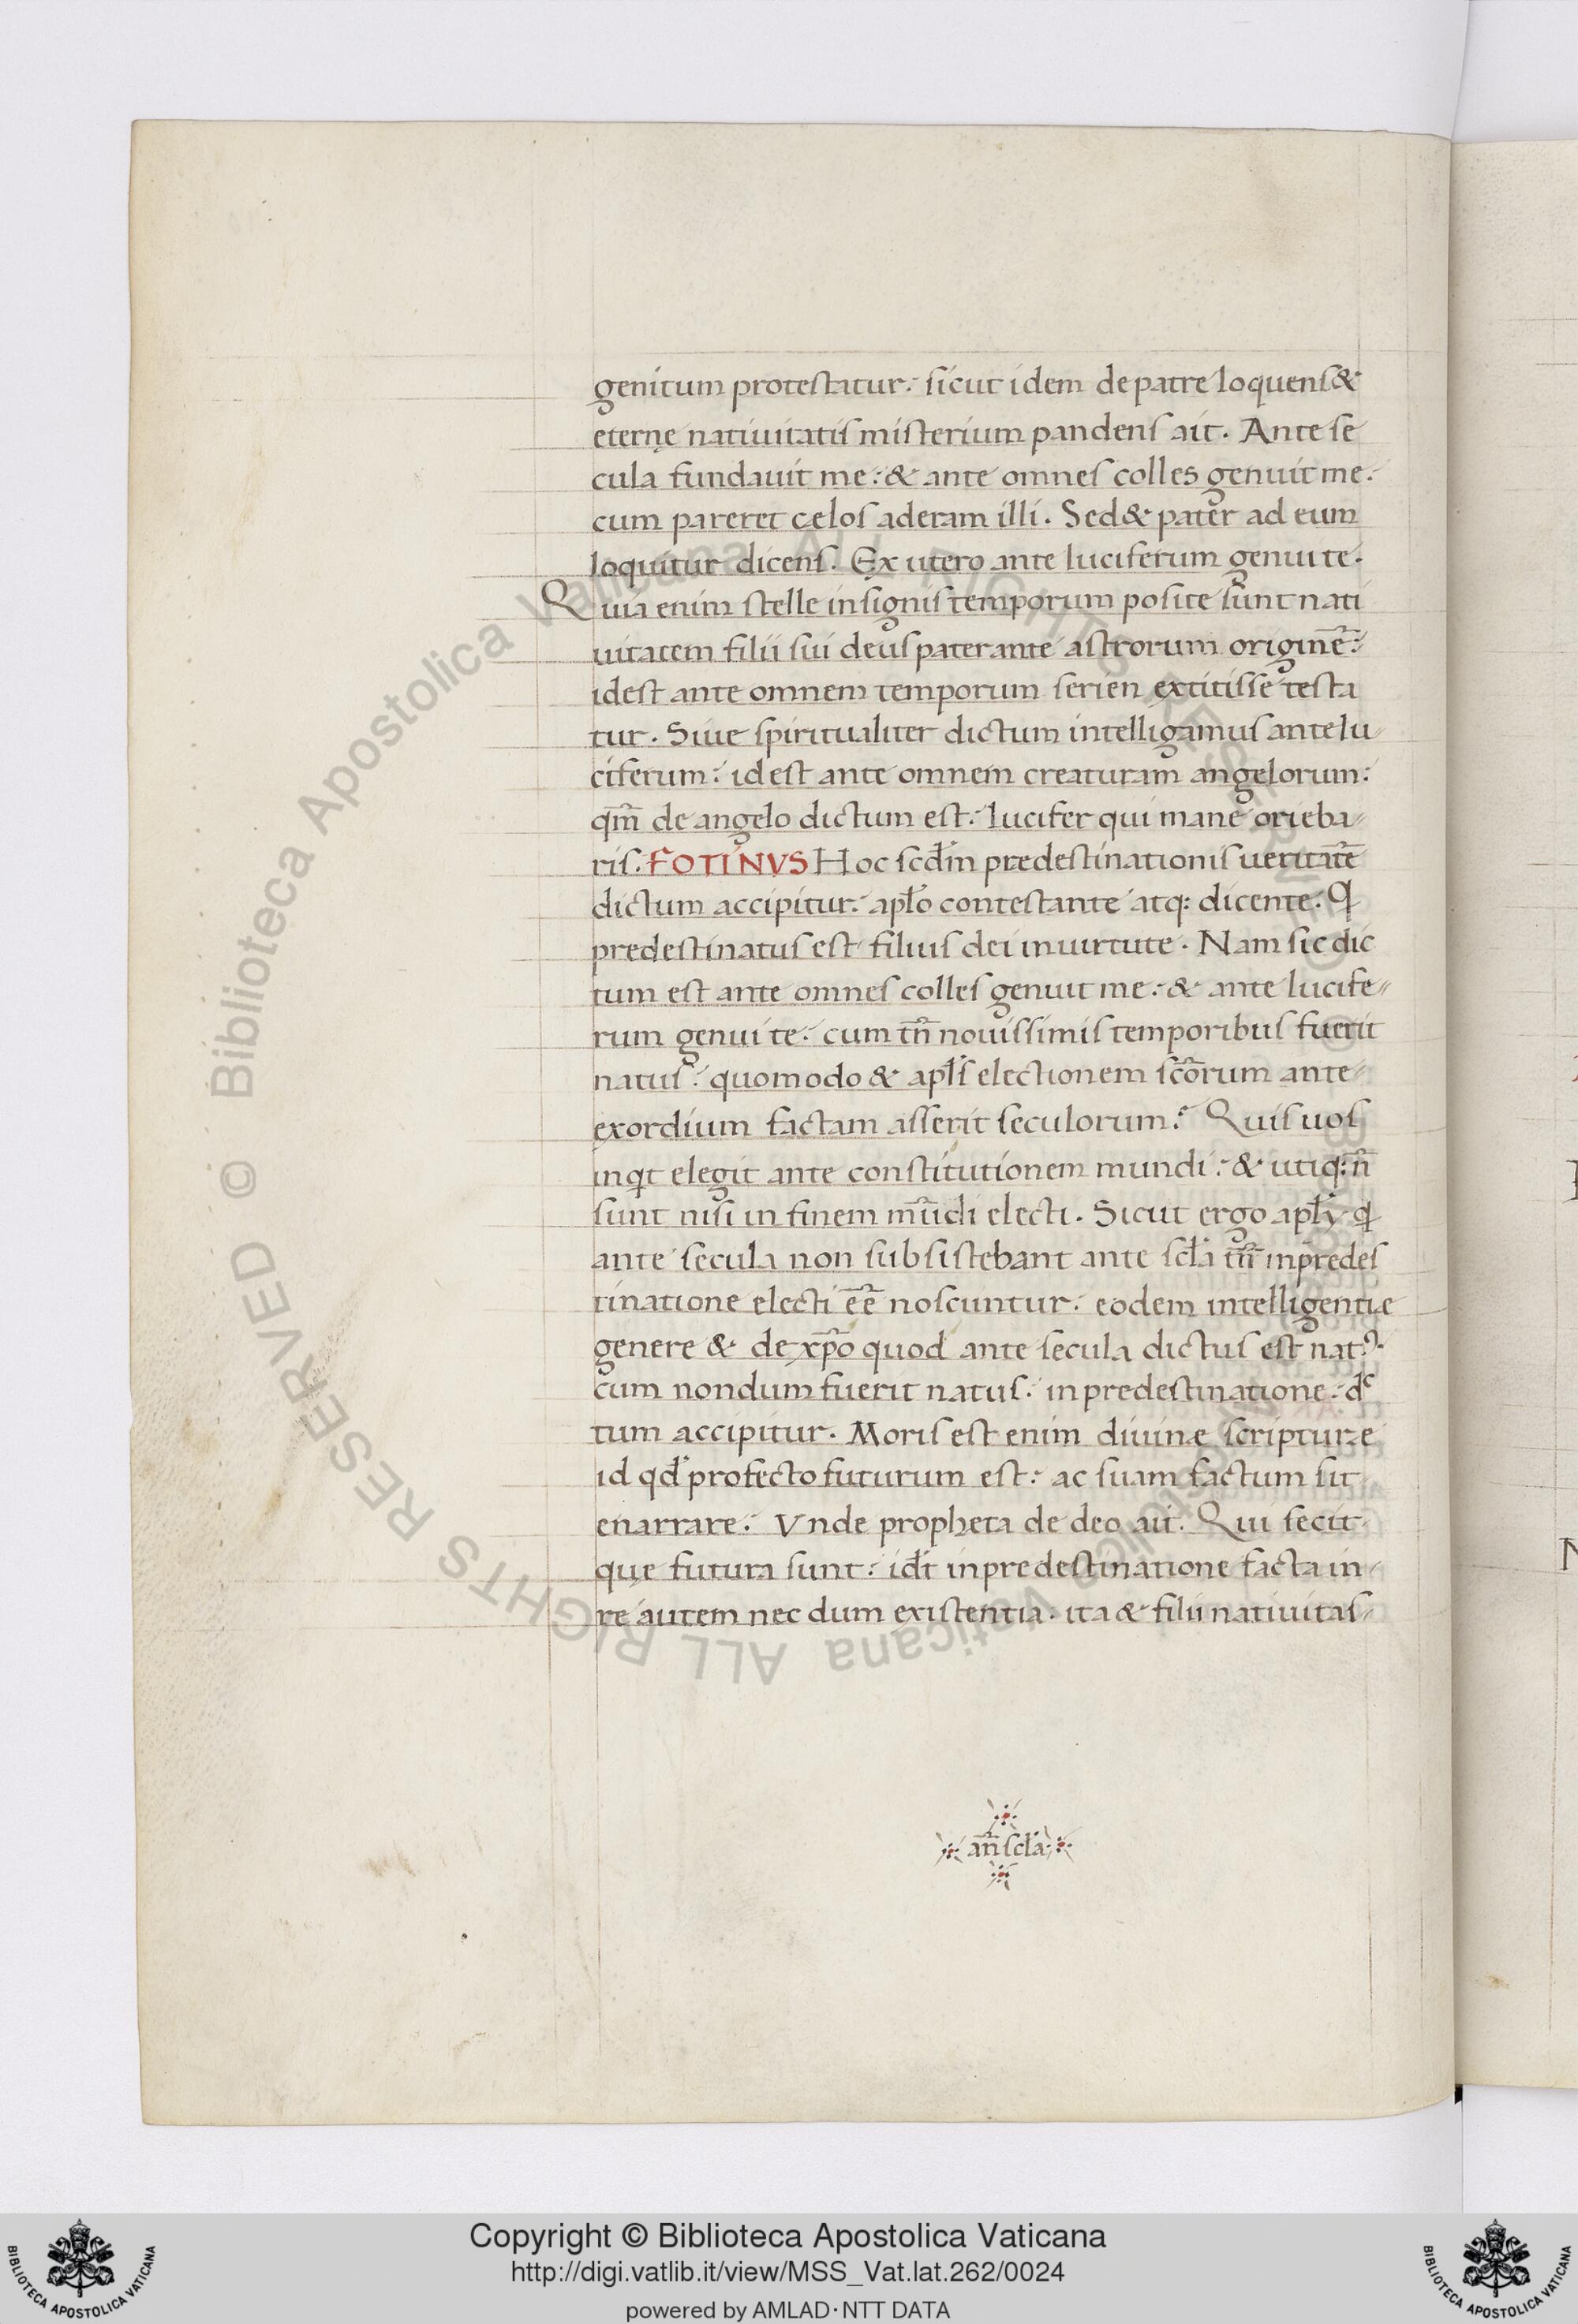 genitum protestatur: sicut idem de patre loquens &
eternę natiuitatis misterium pandens ait. Ante se
cula fundauit me: & ante omnes colles genuit me:
cum pareret cęlos aderam illi. Sed & pater ad eum
loquitur dicens. Ex utero ante luciferum genui te.
Quia enim stelle in signis temporum posite sunt nati
uitatem filii sui deus pater ante astrorum originē:
idest ante omnem temporum serien extitisse testa
tur. Siue spiritualiter dictum intelligamus ante lu
ciferum: idest ante omnem creaturam angelorum:
qm̄ de angelo dictum est: lucifer qui mane orieba⸗
ris. FOTINVS Hoc scđm predestinationis ueritatē
dictum accipitur: apło contestante atq: dicente. Q
predestinatus est filius dei in uirtute. Nam sic dic
tum est ante omnes colles genuit me: & ante lucife⸗
rum genui te: cum tn̄ nouissimis temporibus fuerit
natus: quomodo & apłs electionem scōrum ante
exordium factam asserit seculorum: Quis uos
inqt elegit ante constitutionem mundi: & utiq: n̄
sunt nisi in finem mūdi electi. Sicut ergo apły q
ante secula non subsistebant ante scła tn̄ in predes
tinatione electi eē noscuntur: eodem intelligentie
genere & de xp̄o quod ante secula dictus est natꝰ.
cum nondum fuerit natus: in predestinatione dc
tum accipitur. Moris est enim diuinæ scripturæ
id qđ profecto futurum est: ac suam factum sit
enarrare: Vnde propheta de deo ait. Qui fecit
que futura sunt: idł in predestinatione facta in⸗
re autem nec dum existentia. ita & filii natiuitas⸗
an̄ scła
© Biblioteca Apostolica Vaticana ALL RIGHTS RESERVED © Biblioteca Apostolica Vaticana ALL RIGHTS RESERVED
Copyright © Biblioteca Apostolica Vaticana
http://digi.vatlib.it/view/MSS_Vat.lat.262/0024
powered by AMLAD·NTT DATA
BIBLIOTECA APOSTOLICA VATICANA
BIBLIOTECA APOSTOLICA VATICANA